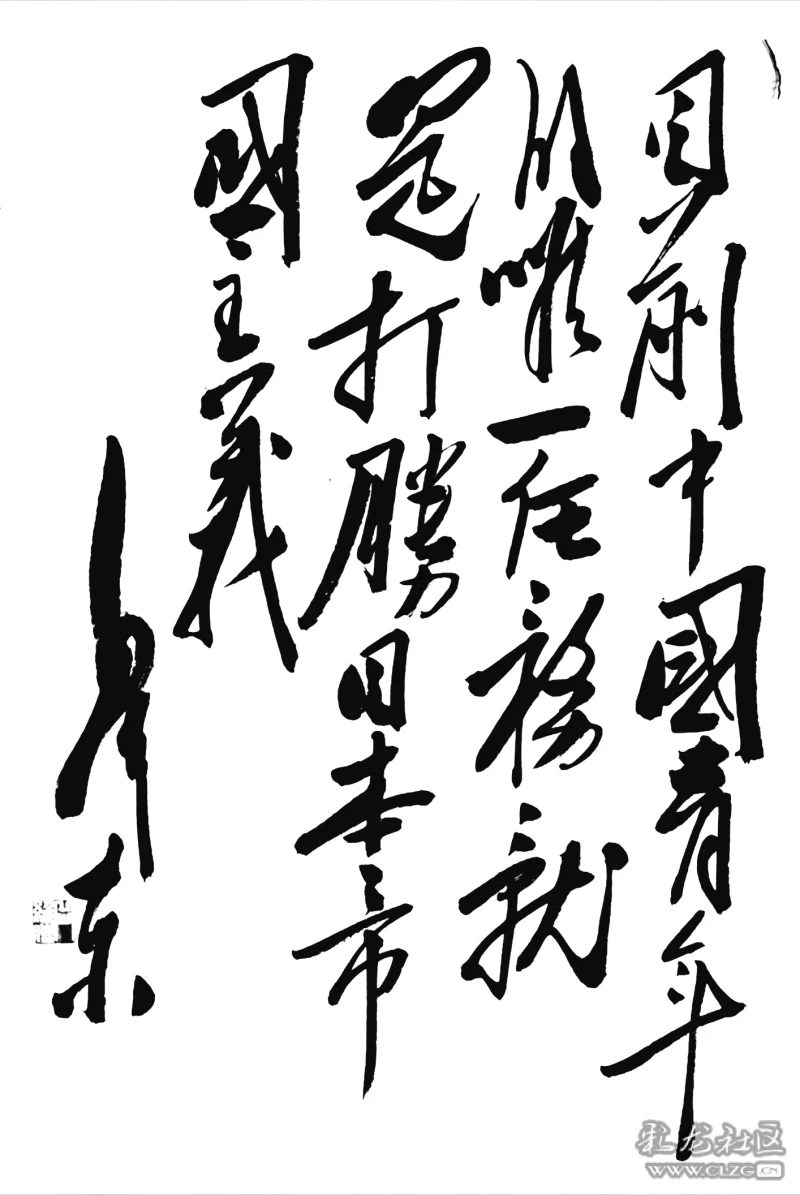 目前中國青年
的唯一任務就
是打勝日本帝
國主義
毛澤東
彩龙社区
WWW.CLZG.CN